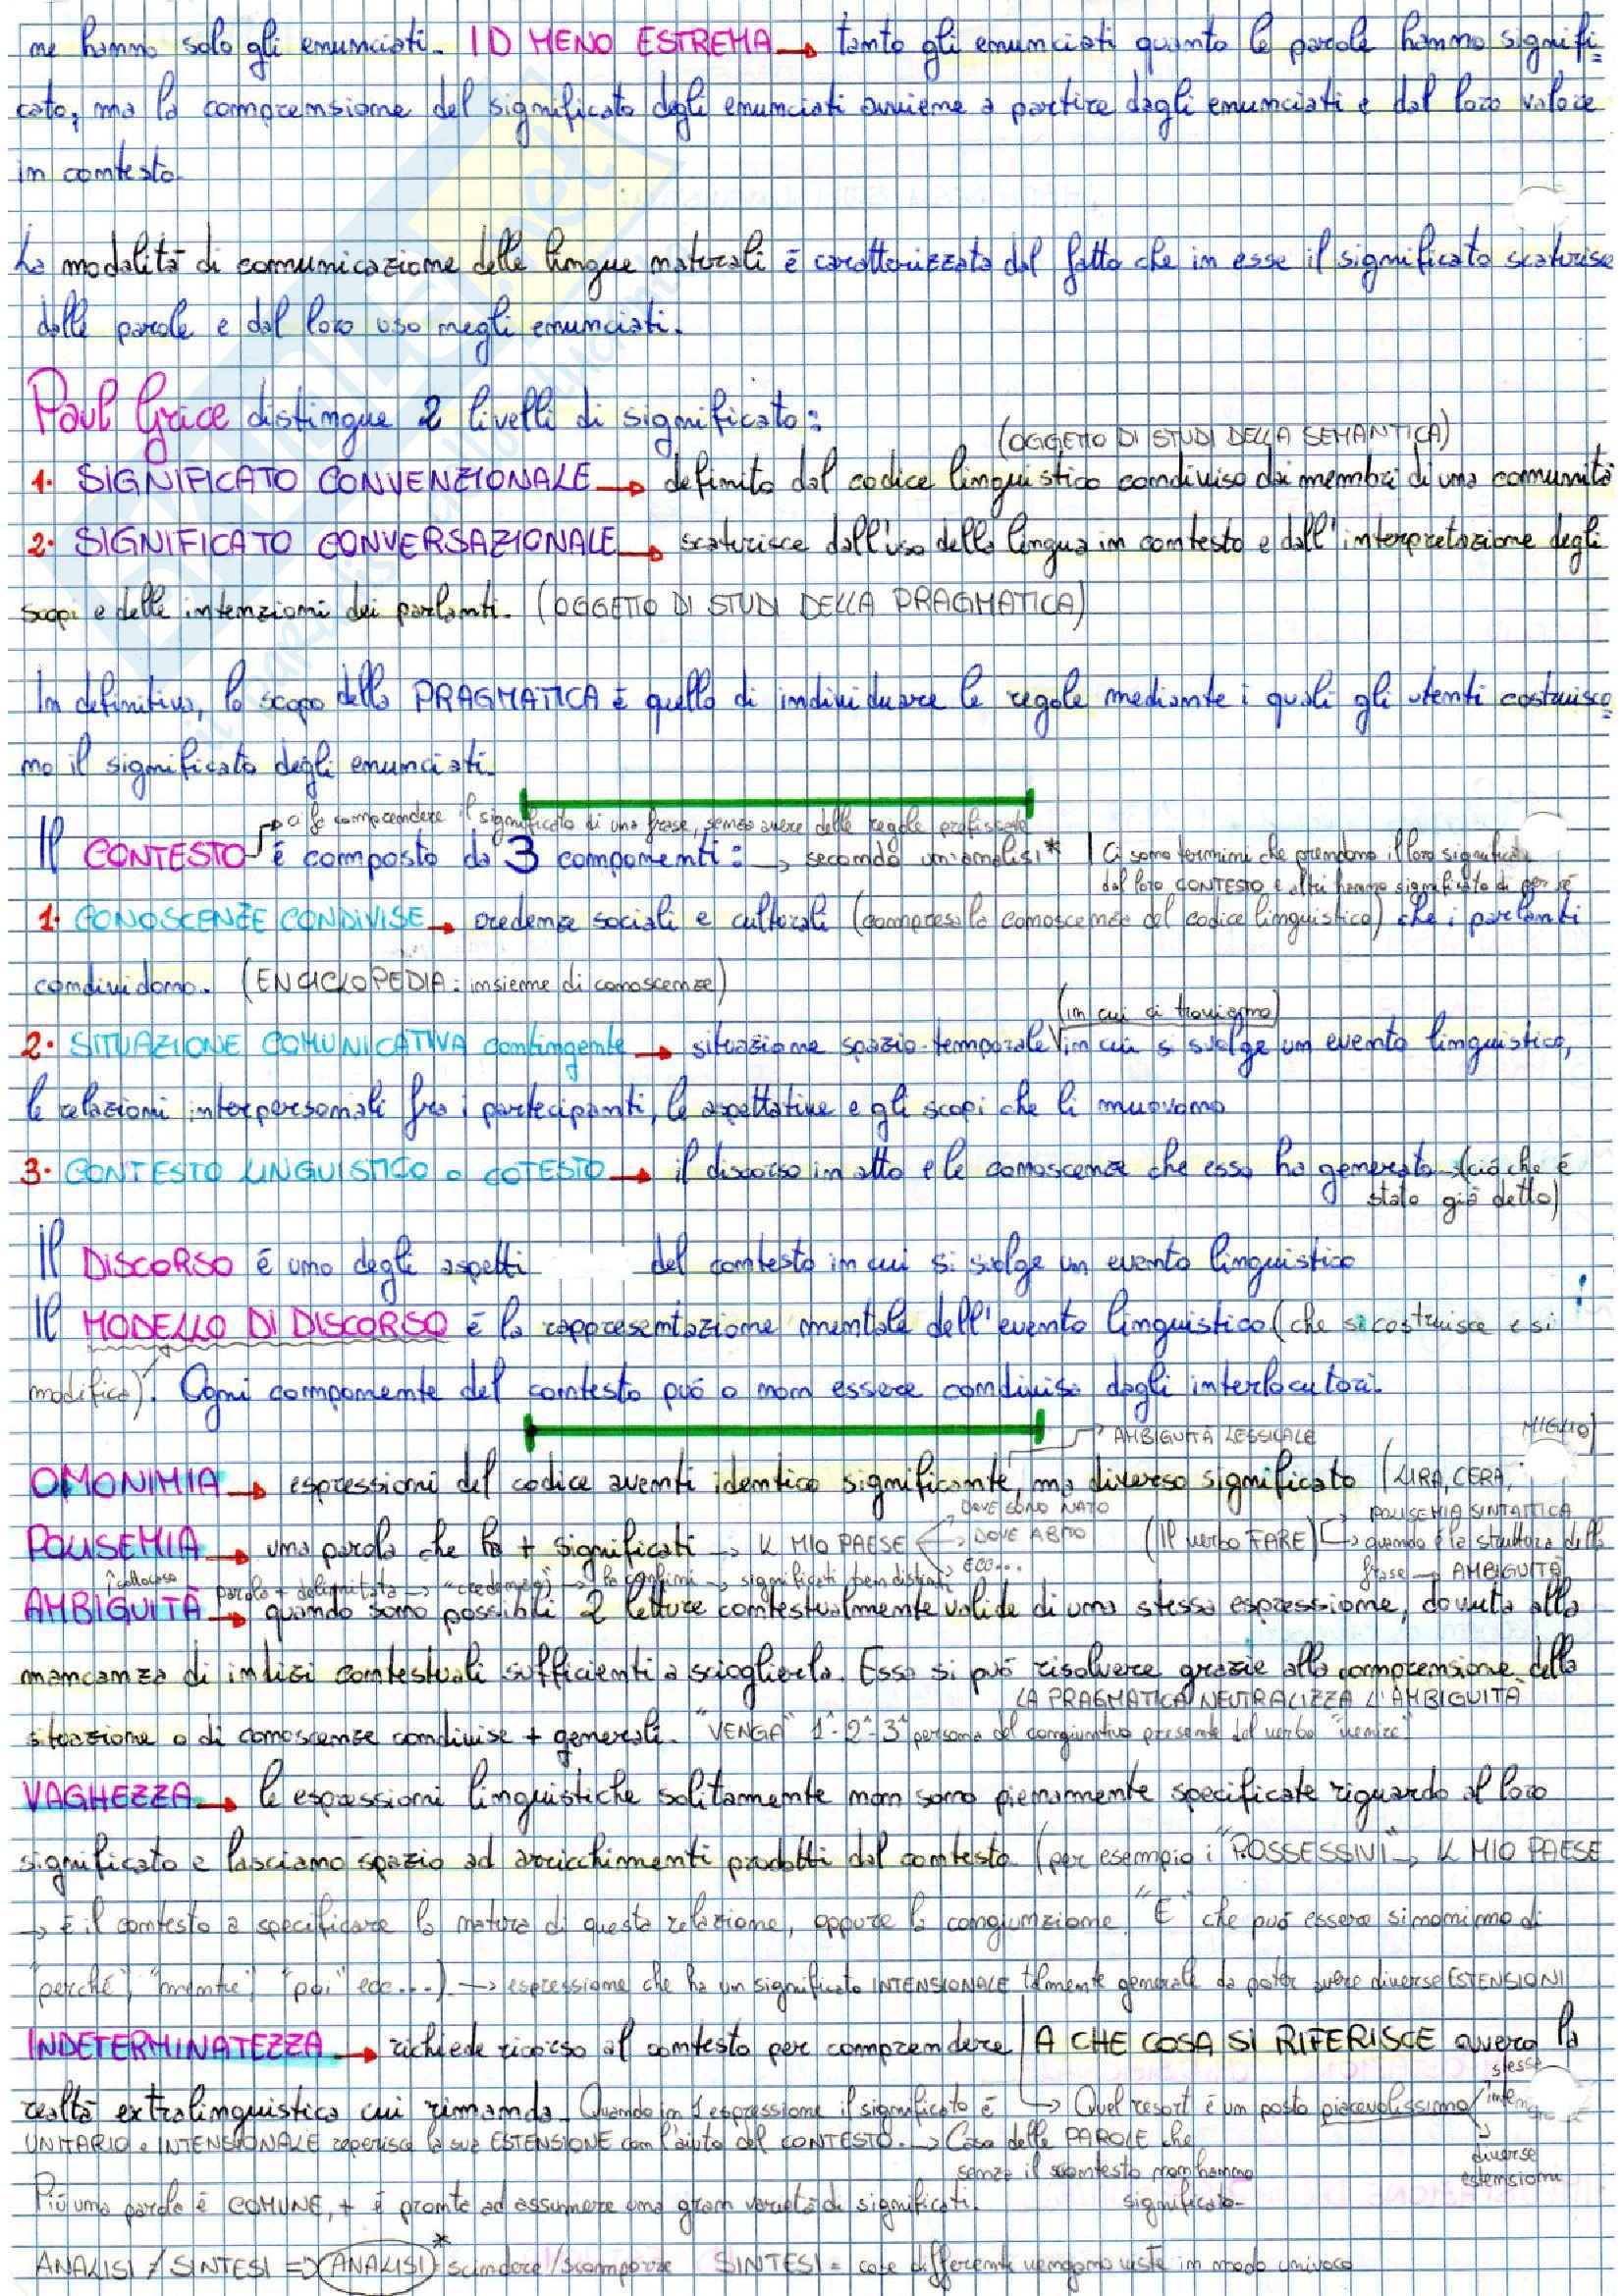 ne hanno solo gli enunciati. ID MENO ESTREMA → tanto gli enunciati quanto le parole hanno signifi=
cato, ma la comprensione del significato degli enunciati avviene a partire dagli enunciati e dal loro valore
in contesto.
La modalità di comunicazione delle lingue naturali è caratterizzata dal fatto che in esse il significato scaturisce
dalle parole e dal loro uso negli enunciati.
Paul Grice distingue 2 livelli di significato:
(OGGETTO DI STUDI DELLA SEMANTICA)
1. SIGNIFICATO CONVENZIONALE → definito dal codice linguistico condiviso dai membri di una comunità
2. SIGNIFICATO CONVERSAZIONALE → scaturisce dall'uso della lingua in contesto e dall'interpretazione degli
scopi e delle intenzioni dei parlanti. (OGGETTO DI STUDI DELLA PRAGMATICA)
In definitiva, lo scopo della PRAGMATICA è quello di individuare le regole mediante i quali gli utenti costruisco=
no il significato degli enunciati.
→ ci fa comprendere il significato di una frase, senza avere delle regole prefissate
Il CONTESTO è composto da 3 componenti: → secondo un'analisi* | Ci sono termini che prendono il loro significato
dal loro CONTESTO e altri hanno significato di per sé
1. CONOSCENZE CONDIVISE → credenze sociali e culturali (compresa la conoscenza del codice linguistico) che i parlanti
condividono. (ENCICLOPEDIA: insieme di conoscenze)
(in cui ci troviamo)
2. SITUAZIONE COMUNICATIVA contingente → situazione spazio-temporale in cui si svolge un evento linguistico,
le relazioni interpersonali fra i partecipanti, le aspettative e gli scopi che li muovono
3. CONTESTO LINGUISTICO o COTESTO → il discorso in atto e le conoscenze che esso ha generato (ciò che è
stato già detto)
Il DISCORSO è uno degli aspetti del contesto in cui si svolge un evento linguistico
Il MODELLO DI DISCORSO è la rappresentazione mentale dell'evento linguistico (che si costruisce e si
modifica). Ogni componente del contesto può o non essere condiviso dagli interlocutori.
→ AMBIGUITÀ LESSICALE
MIGLIO)
OMONIMIA → espressioni del codice aventi identico significante, ma diverso significato (LIRA, CERA,
→ DOVE SONO NATO
→ POLISEMIA SINTATTICA
POLISEMIA → una parola che ha + significati → IL MIO PAESE → DOVE ABITO (Il verbo FARE) → quando è la struttura della
→ ECC...
frase → AMBIGUITÀ
parola + delimitata → "credenza" → ha confini → significati ben distinti
AMBIGUITÀ → quando sono possibili 2 letture contestualmente valide di una stessa espressione, dovuta alla
mancanza di indizi contestuali sufficienti a scioglierla. Essa si può risolvere grazie alla comprensione della
LA PRAGMATICA NEUTRALIZZA L'AMBIGUITÀ
situazione o di conoscenze condivise + generali. "VENGA" 1ª-2ª-3ª persona del congiuntivo presente del verbo "venire"
VAGHEZZA → le espressioni linguistiche solitamente non sono pienamente specificate riguardo al loro
significato e lasciano spazio ad arricchimenti prodotti dal contesto (per esempio i "POSSESSIVI" → IL MIO PAESE
→ è il contesto a specificare la natura di questa relazione, oppure la congiunzione "E" che può essere sinonimo di
"perché", "mentre", "poi" ecc...) → espressione che ha un significato INTENSIONALE talmente generale da poter avere diverse ESTENSIONI
INDETERMINATEZZA → richiede ricorso al contesto per comprendere A CHE COSA SI RIFERISCE ovvero la
stesse
realtà extralinguistica cui rimanda. Quando in 1 espressione il significato è → Quel resort è un posto piacevolissimo/
UNITARIO e INTENSIONALE reperisce la sua ESTENSIONE con l'aiuto del CONTESTO. → Cosa delle PAROLE che
diverse
estensioni
senza il contesto non hanno
significato.
Più una parola è COMUNE, + è pronta ad assumere una gran varietà di significati.
ANALISI / SINTESI => ANALISI* = scindere/scomporre SINTESI = cose differenti vengono viste in modo univoco